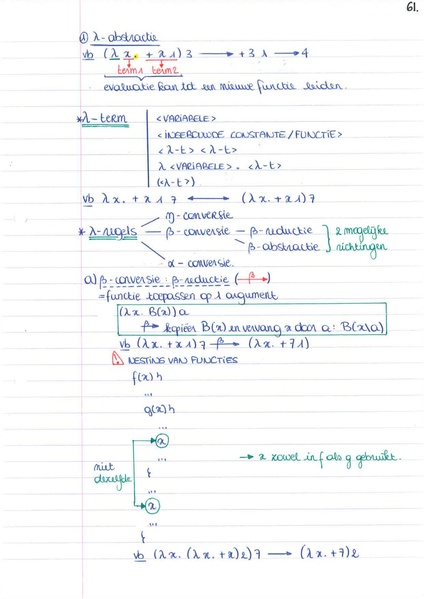 61.
① λ-abstractie
vb (λ x. + x 1) 3 → + 3 1 → 4
term1 term2
evaluatie kan tot een nieuwe functie leiden.
* λ-term
<VARIABELE>
<INGEBOUWDE CONSTANTE/FUNCTIE>
<λ-t> <λ-t>
λ <VARIABELE> . <λ-t>
(<λ-t>)
vb λx. + x 1 7 ↔ (λx. + x 1) 7
η-conversie
* λ-regels β-conversie β-reductie 2 mogelijke
β-abstractie richtingen
α-conversie.
a) β-conversie : β-reductie (β→)
= functie toepassen op 1 argument
(λx. B(x)) a
β→ kopiëer B(x) en vervang x door a : B(x\a)
vb (λx. + x 1) 7 β→ (λx. + 7 1)
! NESTING VAN FUNCTIES
f(x) {
...
g(x) {
...
x → x zowel in f als g gebruikt.
niet
dezelfde
...
}
...
x
...
}
vb (λx. (λx. + x) 2) 7 → (λx. + 7) 2